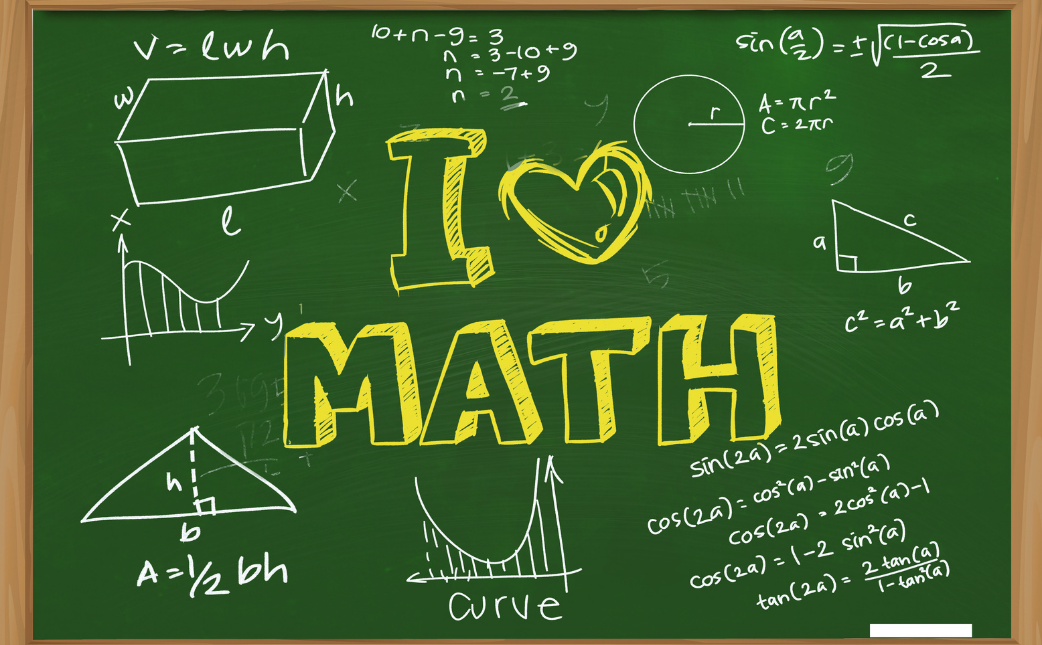 V = lwh
w
h
l
10+n-9=3
n = 3-10+9
n = -7+9
n = 2
sin(a/2) = ±√((1-cosa)/2)
r
A = πr²
C = 2πr
y
x
9
5
I ♥
MATH
a
c
b
c² = a² + b²
x
y
h
b
A = 1/2 bh
curve
sin(2a) = 2sin(a)cos(a)
cos(2a) = cos²(a) - sin²(a)
cos(2a) = 2cos²(a)-1
cos(2a) = 1-2 sin²(a)
tan(2a) = 2tan(a)/1-tan²(a)